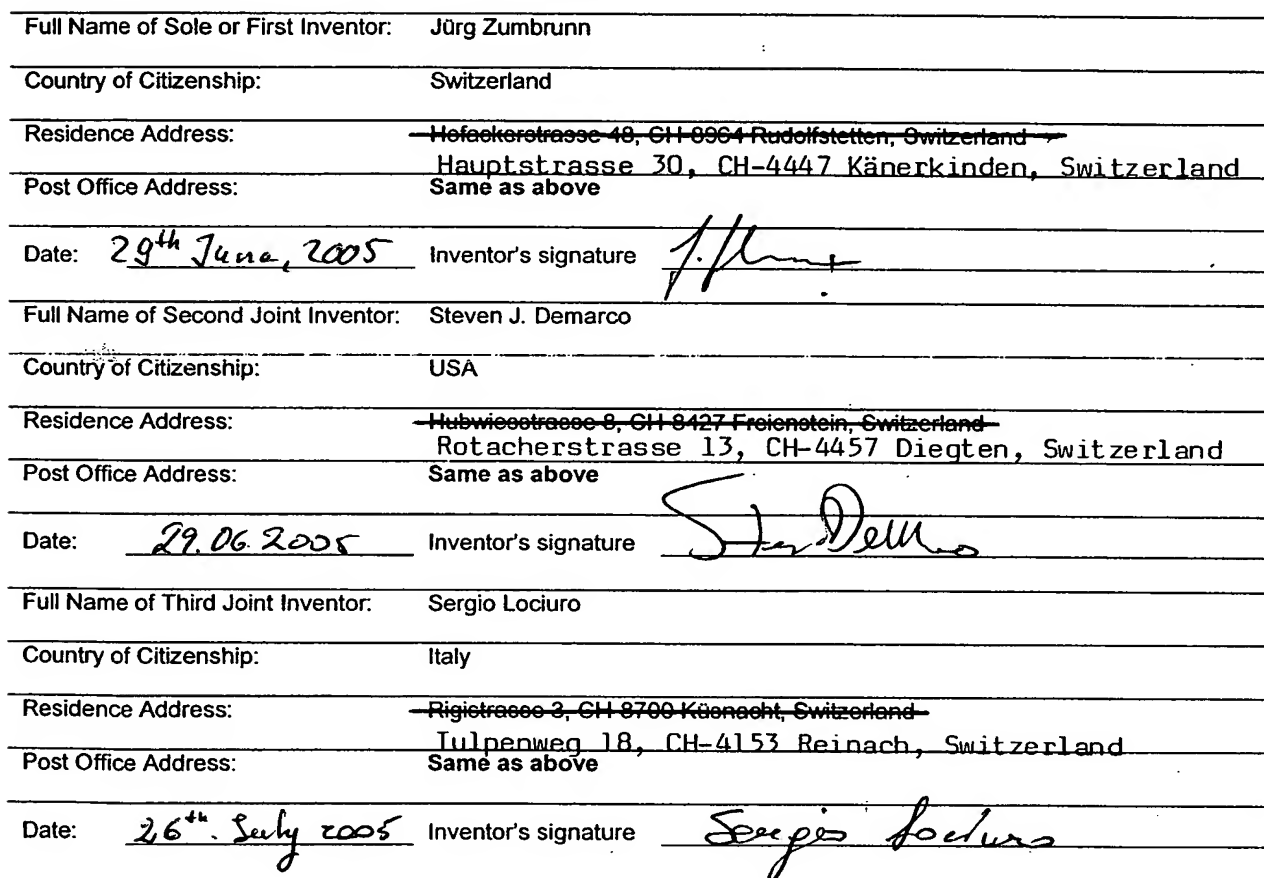 Full Name of Sole or First Inventor: Jürg Zumbrunn
Country of Citizenship: Switzerland
Residence Address: Hofackerstrasse 48, CH-8964 Rudolfstetten, Switzerland
Hauptstrasse 30, CH-4447 Känerkinden, Switzerland
Post Office Address: Same as above
Date: 29th June, 2005 Inventor's signature
Full Name of Second Joint Inventor: Steven J. Demarco
Country of Citizenship: USA
Residence Address: Hubwiesstrasse 8, CH-8427 Freienstein, Switzerland
Rotacherstrasse 13, CH-4457 Diegten, Switzerland
Post Office Address: Same as above
Date: 29.06.2005 Inventor's signature
Full Name of Third Joint Inventor: Sergio Lociuro
Country of Citizenship: Italy
Residence Address: Rigistrasse 3, CH-8700 Küsnacht, Switzerland
Tulpenweg 18, CH-4153 Reinach, Switzerland
Post Office Address: Same as above
Date: 26th. July 2005 Inventor's signature Sergio Lociuro